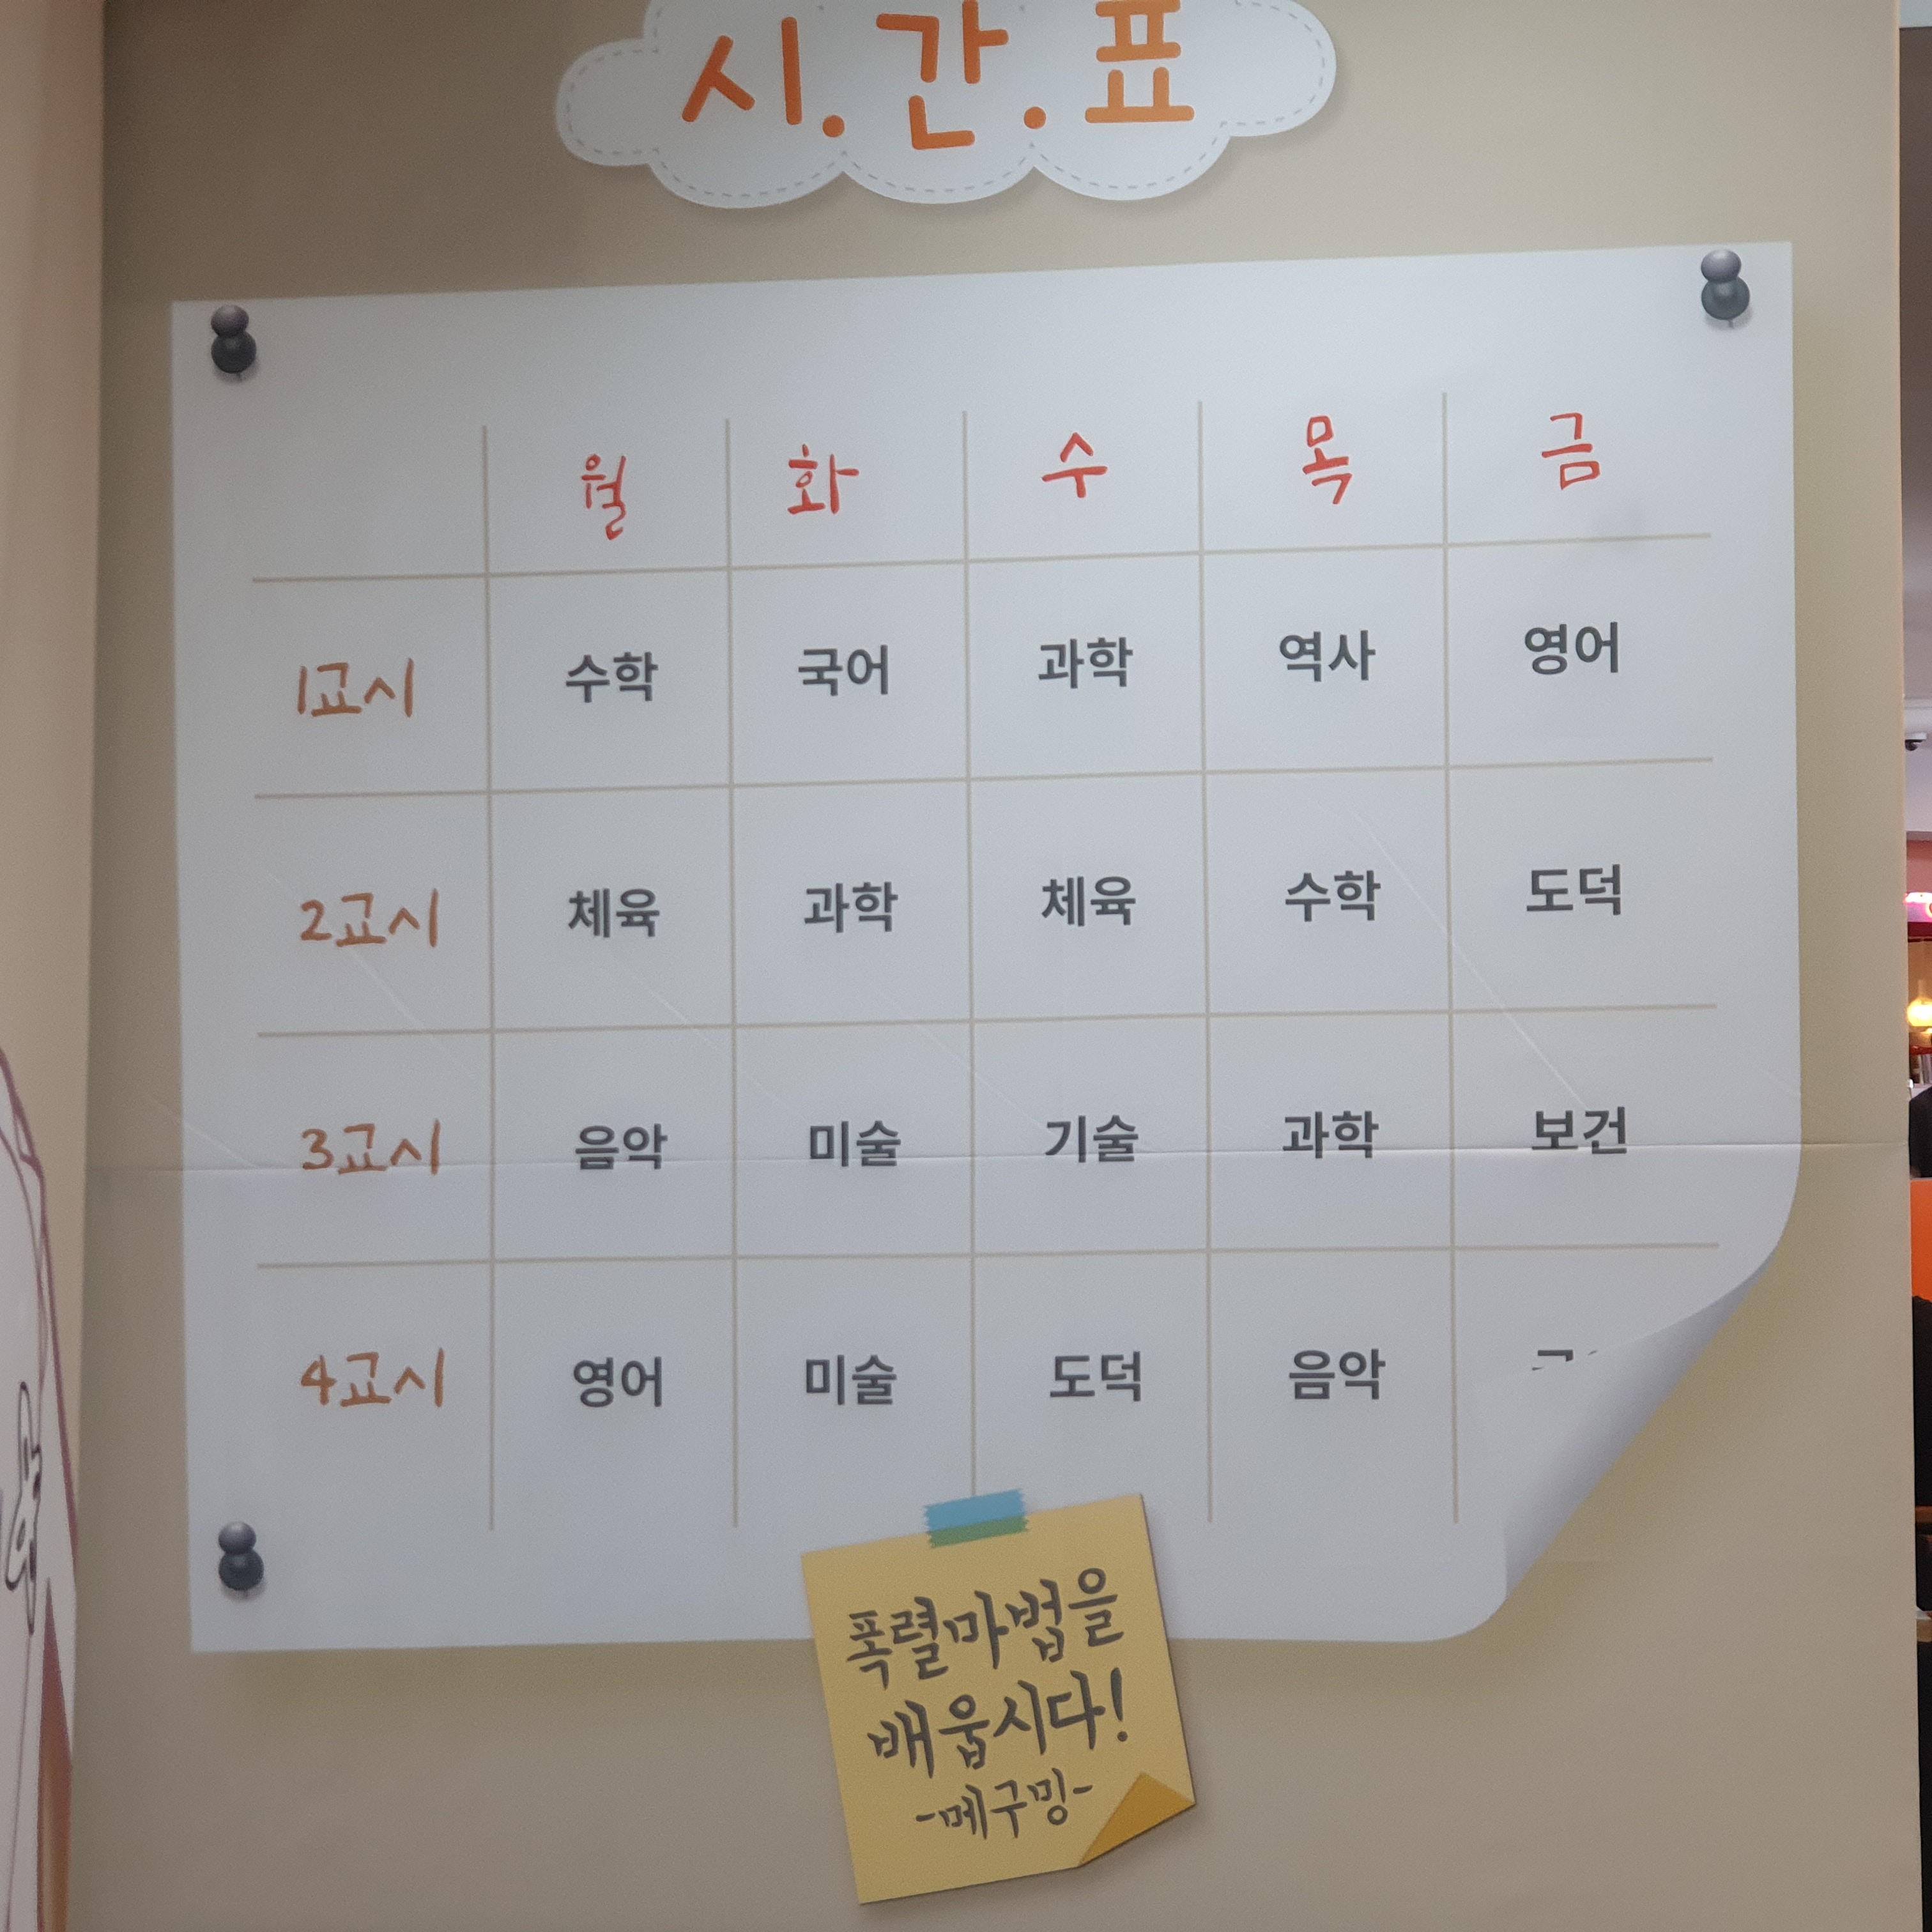 시.간.표
월 화 수 목 금
1교시 수학 국어 과학 역사 영어
2교시 체육 과학 체육 수학 도덕
3교시 음악 미술 기술 과학 보건
4교시 영어 미술 도덕 음악
폭렬마법을
배웁시다!
-메구밍-